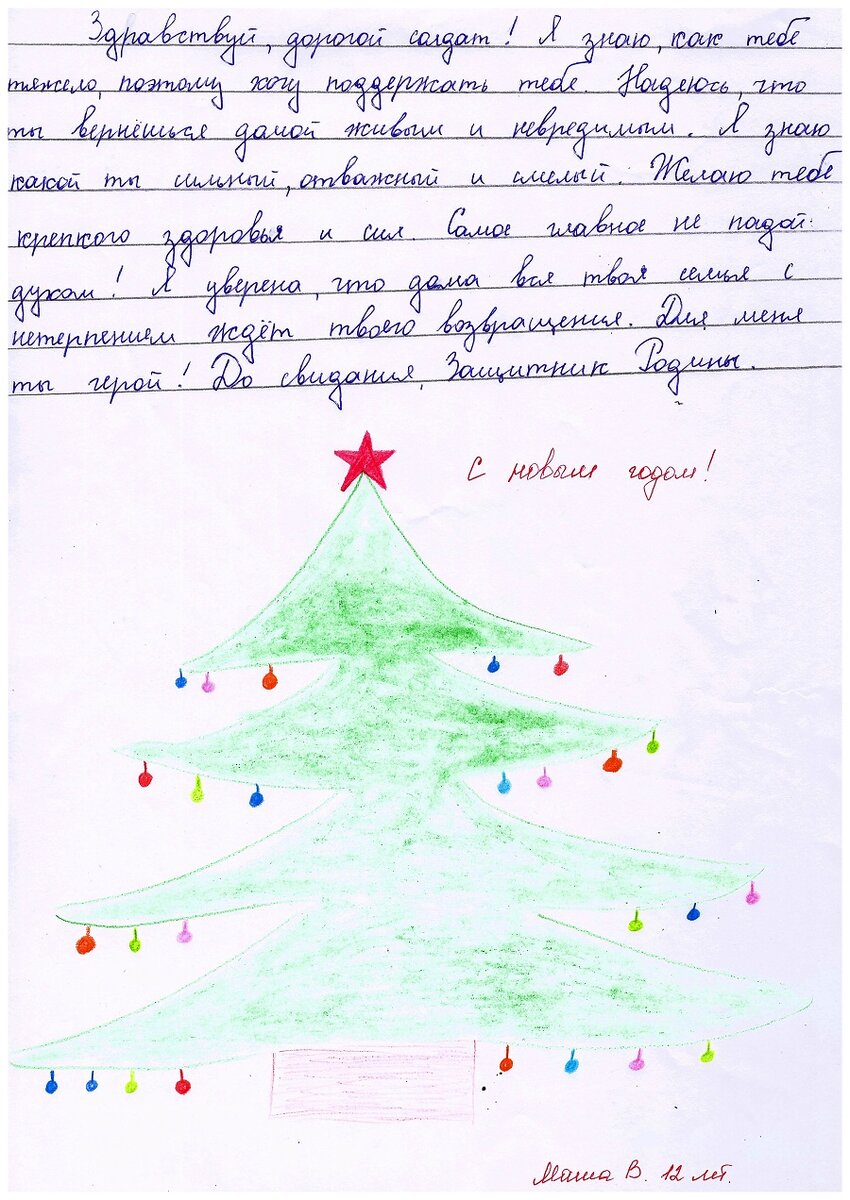 Здравствуй, дорогой солдат! Я знаю, как тебе
тяжело, поэтому хочу поддержать тебе. Надеюсь, что
ты вернёшься домой живым и невредимым. Я знаю
какой ты сильный, отважный и смелый. Желаю тебе
крепкого здоровья и сил. Самое главное не падай
духом! Я уверена, что дома вся твоя семья с
нетерпением ждёт твоего возвращения. Для меня
ты герой! До свидания, Защитник Родины.
С новым годом!
Маша В. 12 лет.